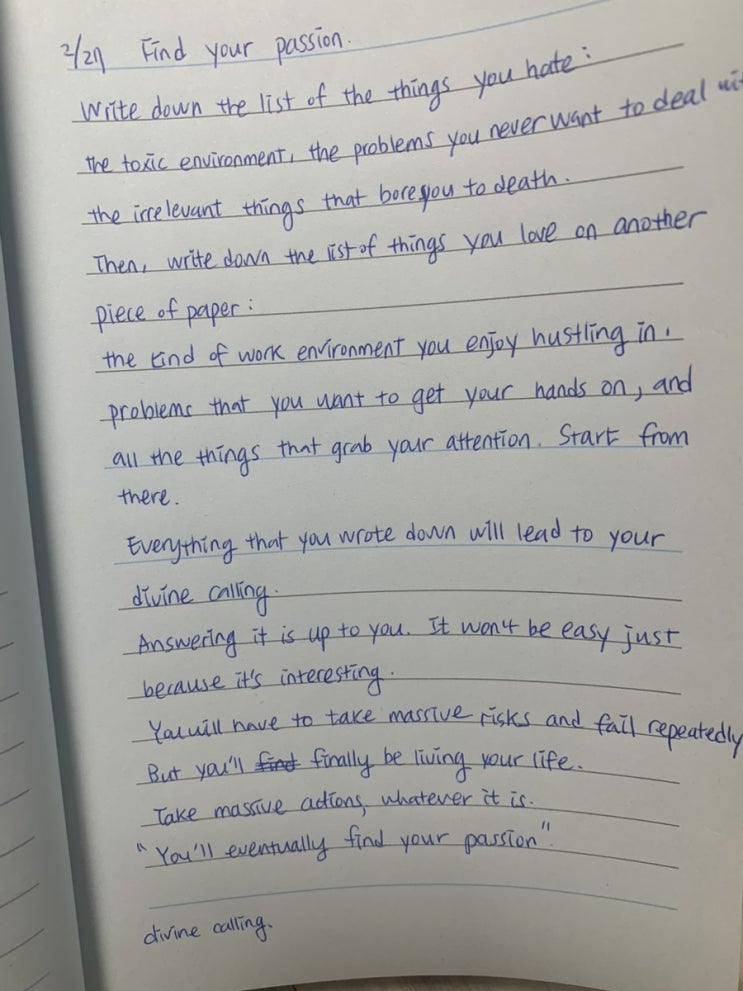 2/27 Find your passion.
Write down the list of the things you hate:
the toxic environment, the problems you never want to deal wi
the irrelevant things that bore you to death.
Then, write down the list of things you love on another
piece of paper:
the kind of work environment you enjoy hustling in,
problems that you want to get your hands on, and
all the things that grab your attention. Start from
there.
Everything that you wrote down will lead to your
divine calling.
Answering it is up to you. It won't be easy just
because it's interesting.
You will have to take massive risks and fail repeatedly
But you'll find finally be living your life.
Take massive actions, whatever it is.
"You'll eventually find your passion".
divine calling.